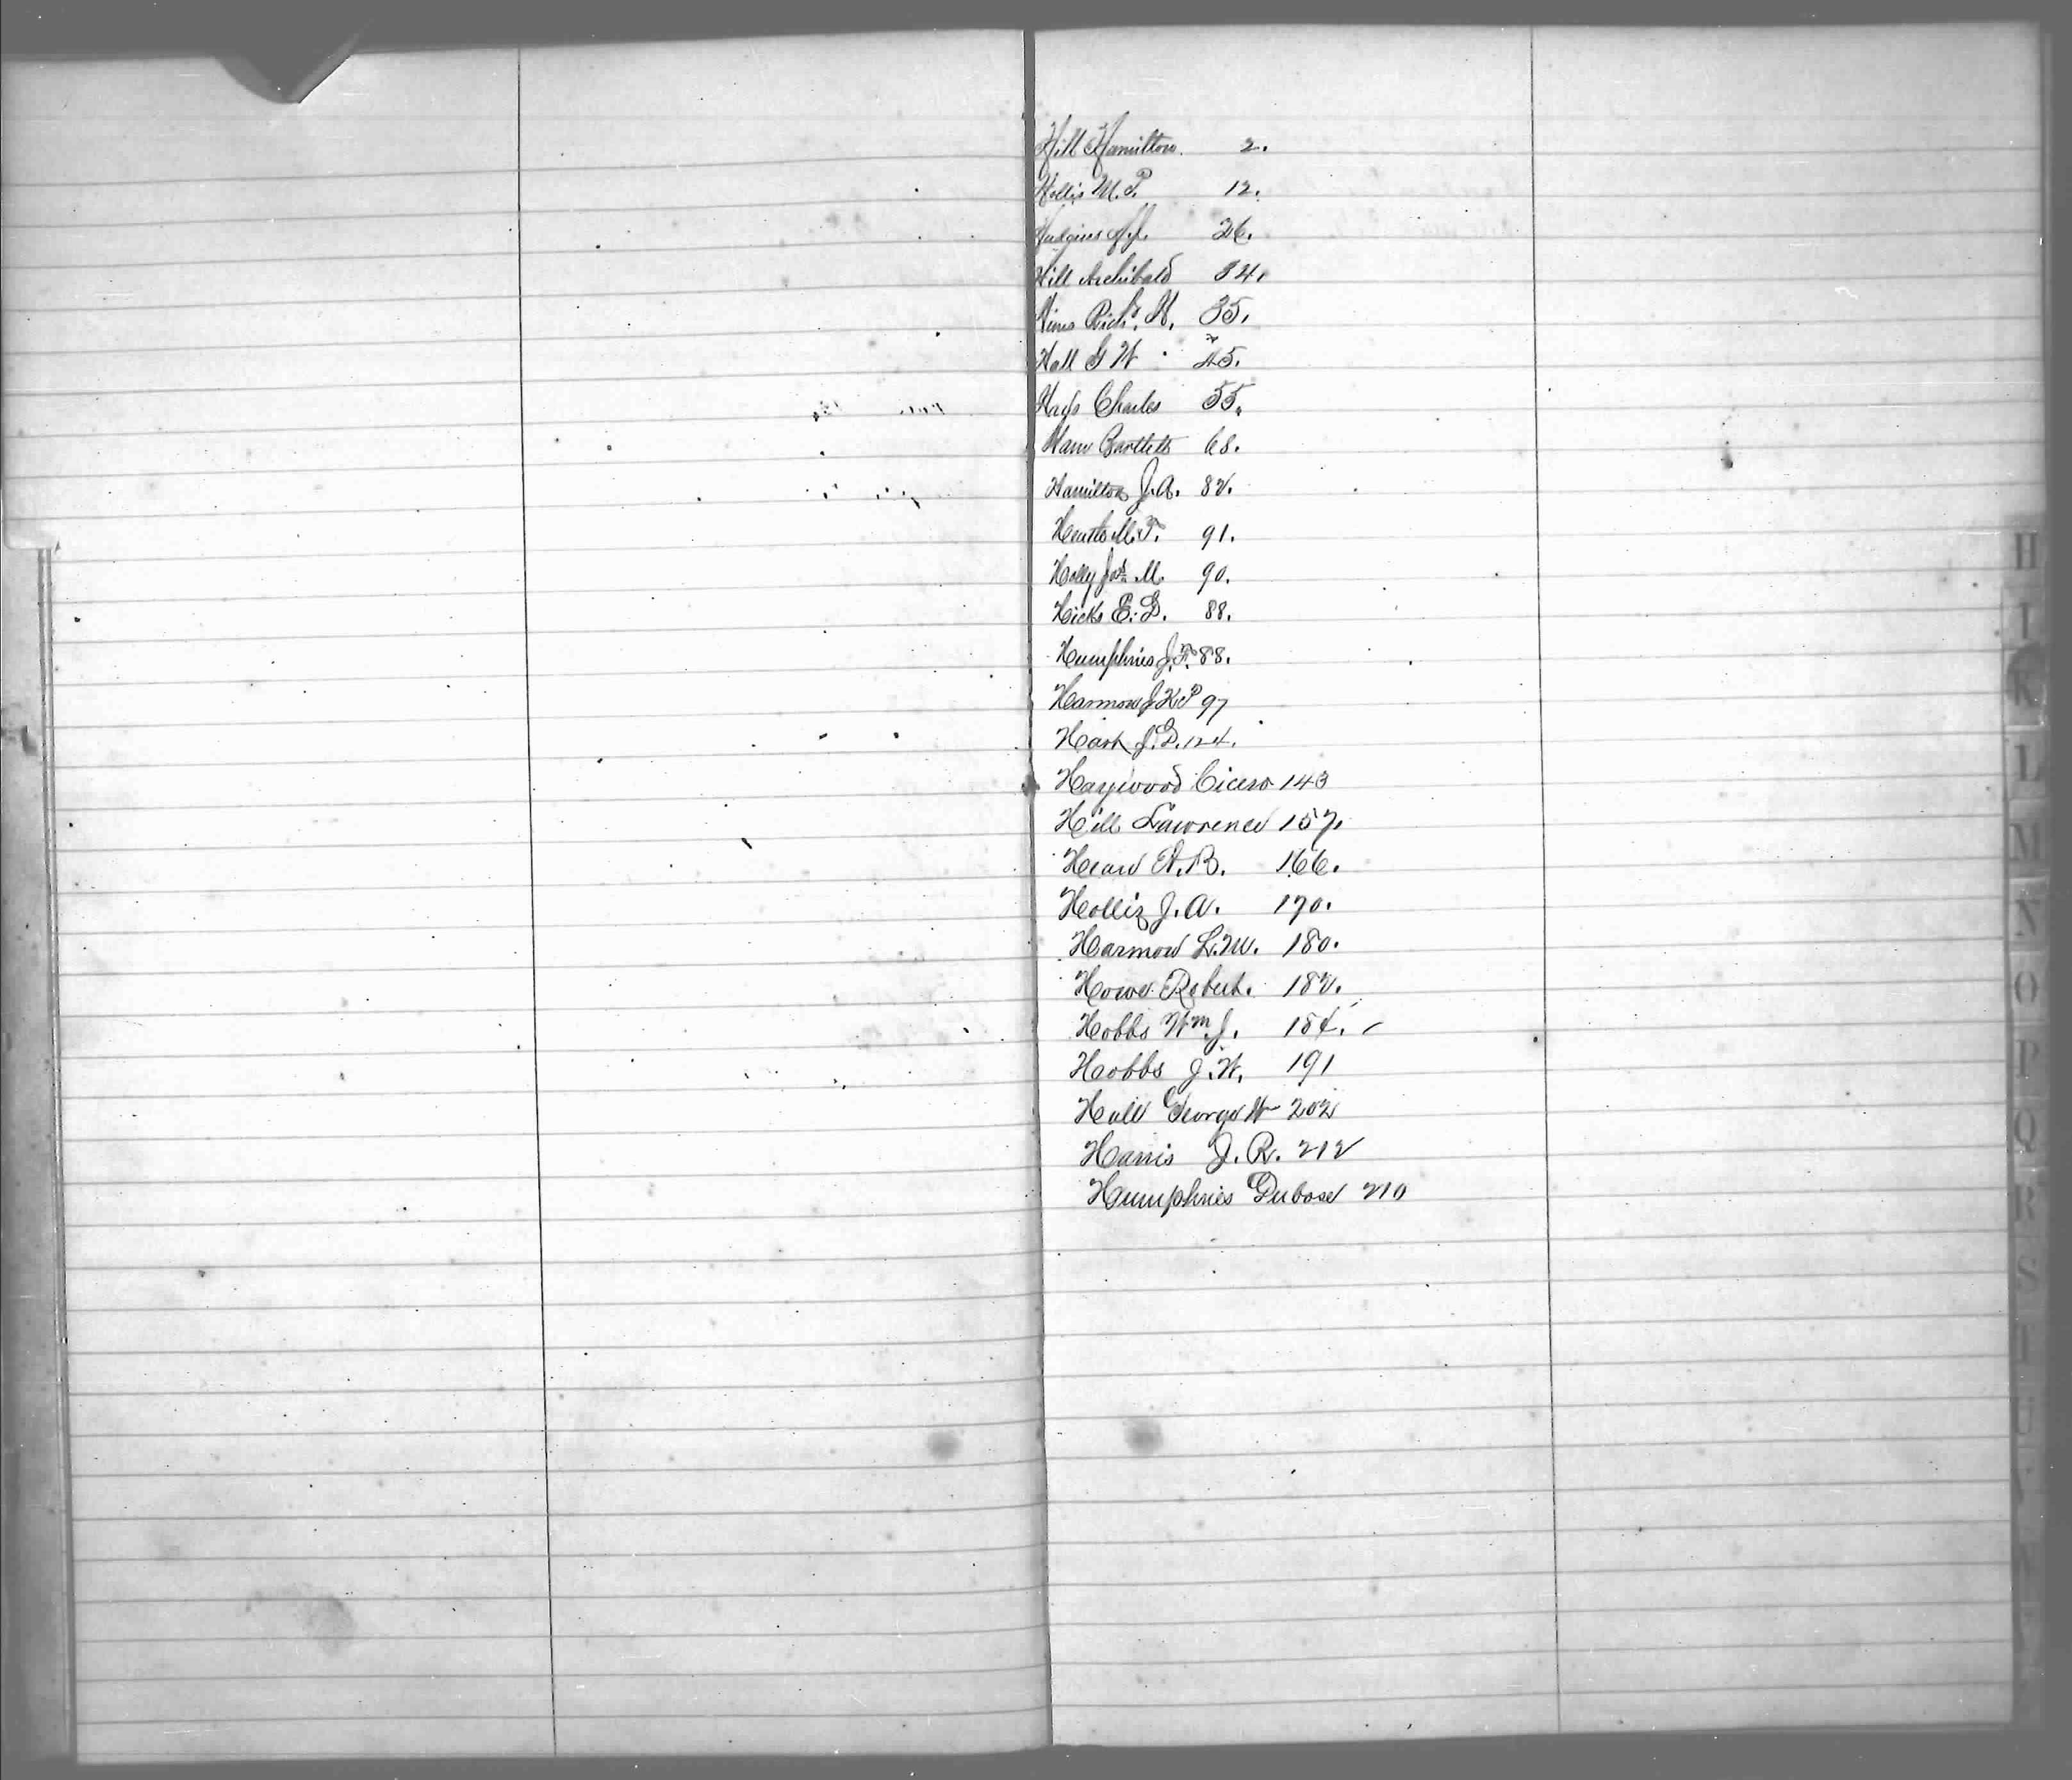 Hill Hamilton. 2.
Hollis M. P. 12.
Hudgins 26.
Hill Archibald 34.
Hines Rich'd. H. 35.
Hall G W 45.
Hays Charles 55.
Ham Bartlett 68.
Hamilton J. A. 82.
M. F. 91.
Holly Jas. M. 90.
Hicks E. D. 88.
Humphries J. F. 88.
Harmon J K P 97
Hart J. D. 124.
Haywood Cicero 143
Hill Lawrence 157.
Heard A. B. 166.
Hollis J. A. 170.
Harmon L. W. 180.
Howe Robert. 182.
Hobbs Wm. J. 184.
Hobbs J. W. 191
Hall George W 202
Harris J. R. 212
Humphries Dubose 210
H
I
K
L
M
N
O
P
Q
R
S
T
U